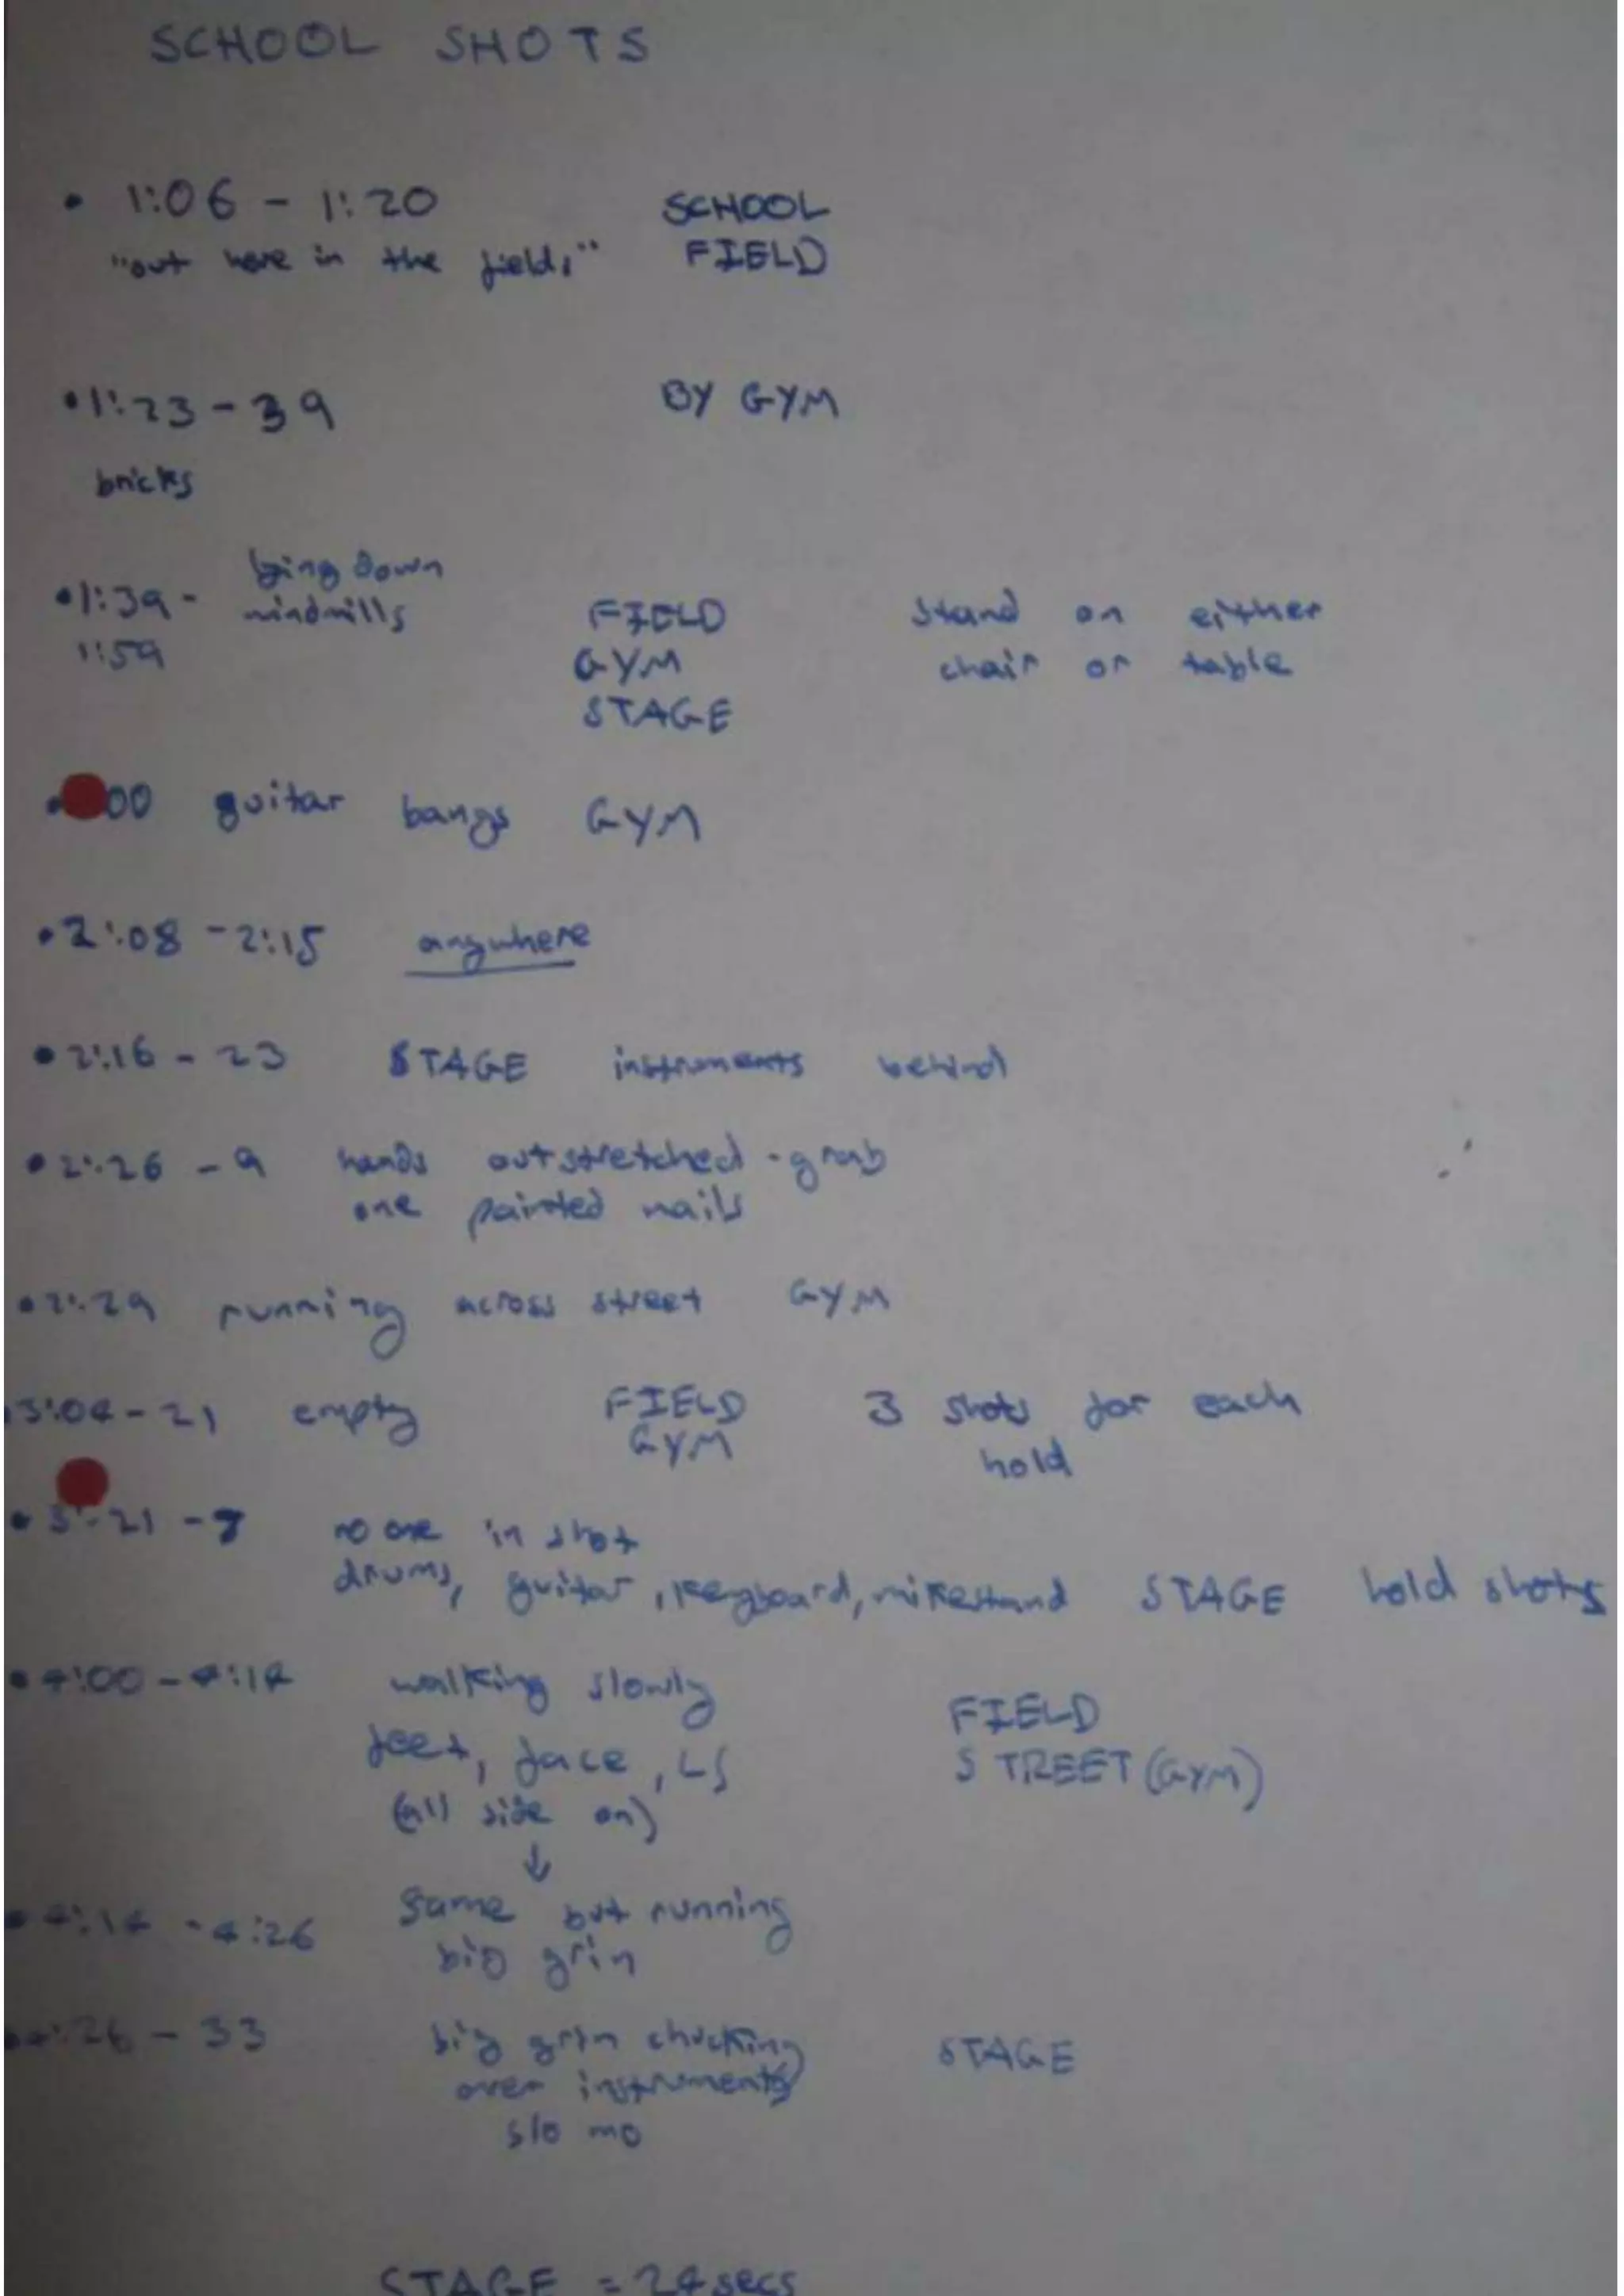 SCHOOL SHOTS
• 1:06 - 1:20 SCHOOL
"out here in the field," FIELD
• 1:23 - 39 BY GYM
bricks
lying down
• 1:39 - windmills FIELD stand on either
1:59 GYM chair or table
STAGE
• 00 guitar bangs GYM
• 2:08 - 2:15 anywhere
• 2:16 - 23 STAGE instruments behind
• 2:26 - 9 hands outstretched - grab
one painted nails
• 2:29 running across street GYM
3:04 - 21 empty FIELD 3 shots for each
GYM hold
• 3:21 - 8 no one in shot
drums, guitar, keyboard, mikestand STAGE hold shots
• 4:00 - 4:14 walking slowly FIELD
feet, face, LS STREET (GYM)
(all side on)
↓
• 4:14 - 4:26 Same but running
big grin
4:26 - 33 big grin chucking STAGE
over instruments
slo mo
STAGE = 24 secs